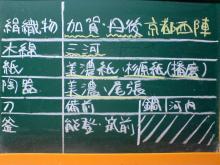 絹織物 加賀・丹後 京都西陣
木綿 三河
紙 美濃紙・杉原紙(播磨)
陶器 美濃・尾張
刀 備前 鍋 河内
釜 能登・筑前